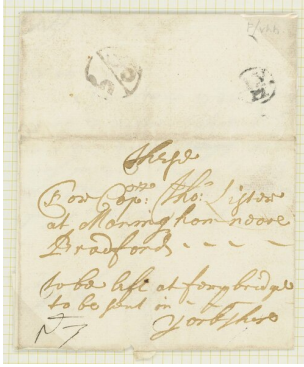 These
For Capt: Tho: Lister
at Manningham neare
Bradford - - - -
to be left at ferrybridge
to be sent in
Yorkshire